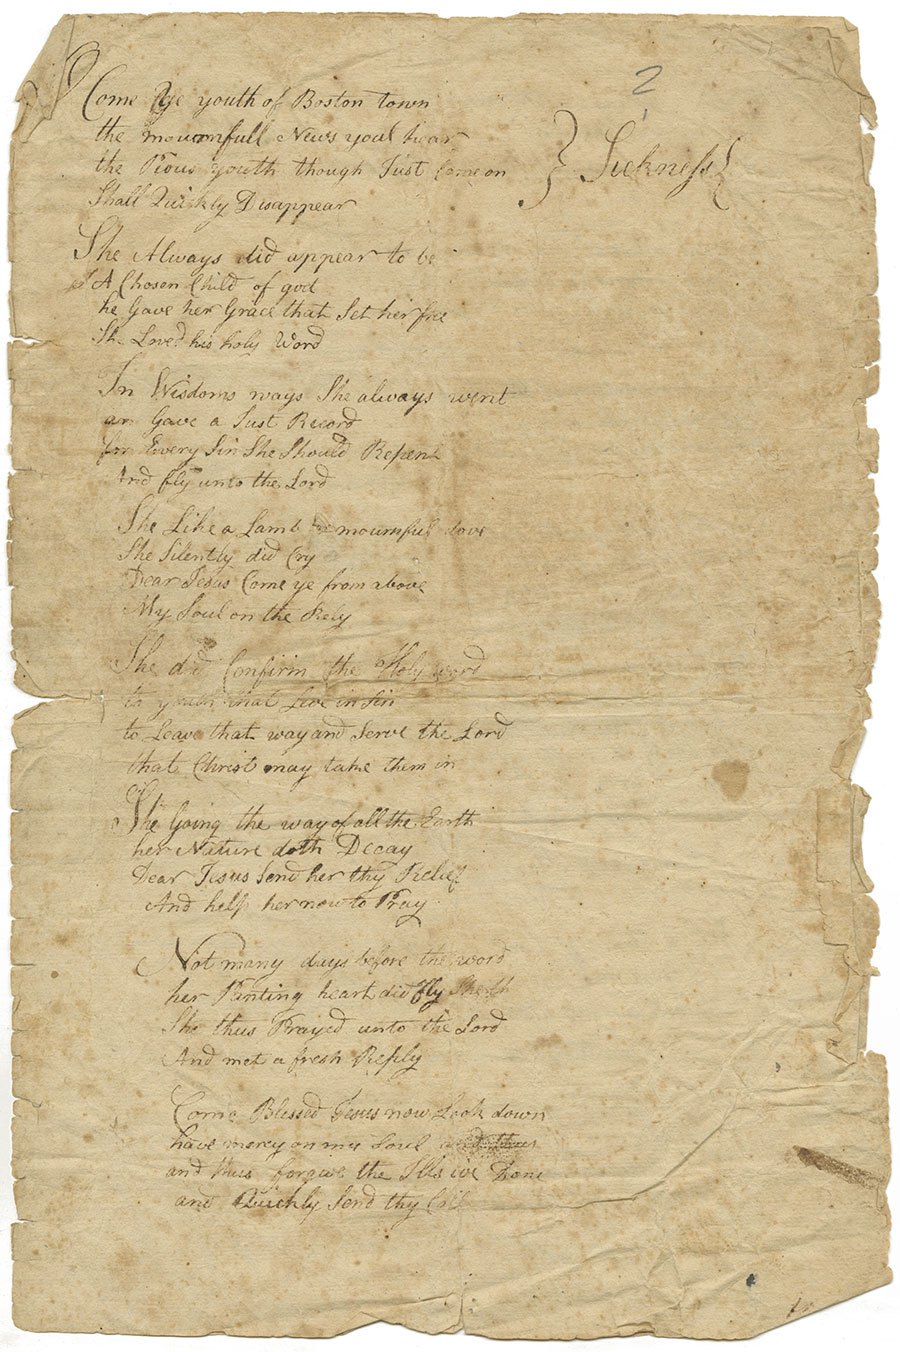 2
} Sickness {
Come Ye youth of Boston town
the mournfull News youl hear
the Pious youth though Just Come on
Shall Quickly Disappear
She Always did appear to be
A Chosen Child of god
he Gave her Grace that Set her free
She Loved his holy Word
In Wisdoms ways She always went
an Gave a Just Record
for Every Sin She Should Repent
And fly unto the Lord
She Like a Lamb mournful dove
She Silently did Cry
Dear Jesus Come ye from above
My Soul on the Rely
She did Confirm the Holy word
to youth that Live in Sin
to Leave that way and Serve the Lord
that Christ may take them in
She Going the way of all the Earth
her Nature doth Decay
Dear Jesus Send her thy Relief
And help her now to Pray
Not many days before the word
her Panting heart did fly
She thus Prayed unto the Lord
And met a fresh Reply
Come Blessed Jesus now Look down
have mercy on my Soul
and thus forgive the Ills ive Done
and Quickly Send thy Call